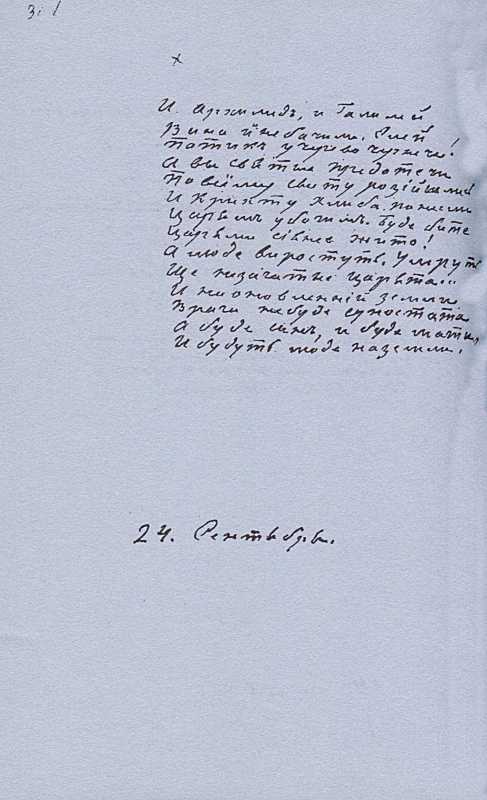 31
+
И Архимедъ, и Галилей
Вина й небачили. Елей
Потикъ у черево чернече!
А вы святые предотечи
По всёму свиту розійшлись
И крихту хлиба понесли
Царямъ убогимъ. Буде бите
Царями сіянеє жито!
А люде виростуть. Умруть
Ще незачатые царята...
И на оновленій земли
Врага не буде супостата
А буде синъ, и буде мати,
И будуть люде на земли.
24. Сентября.